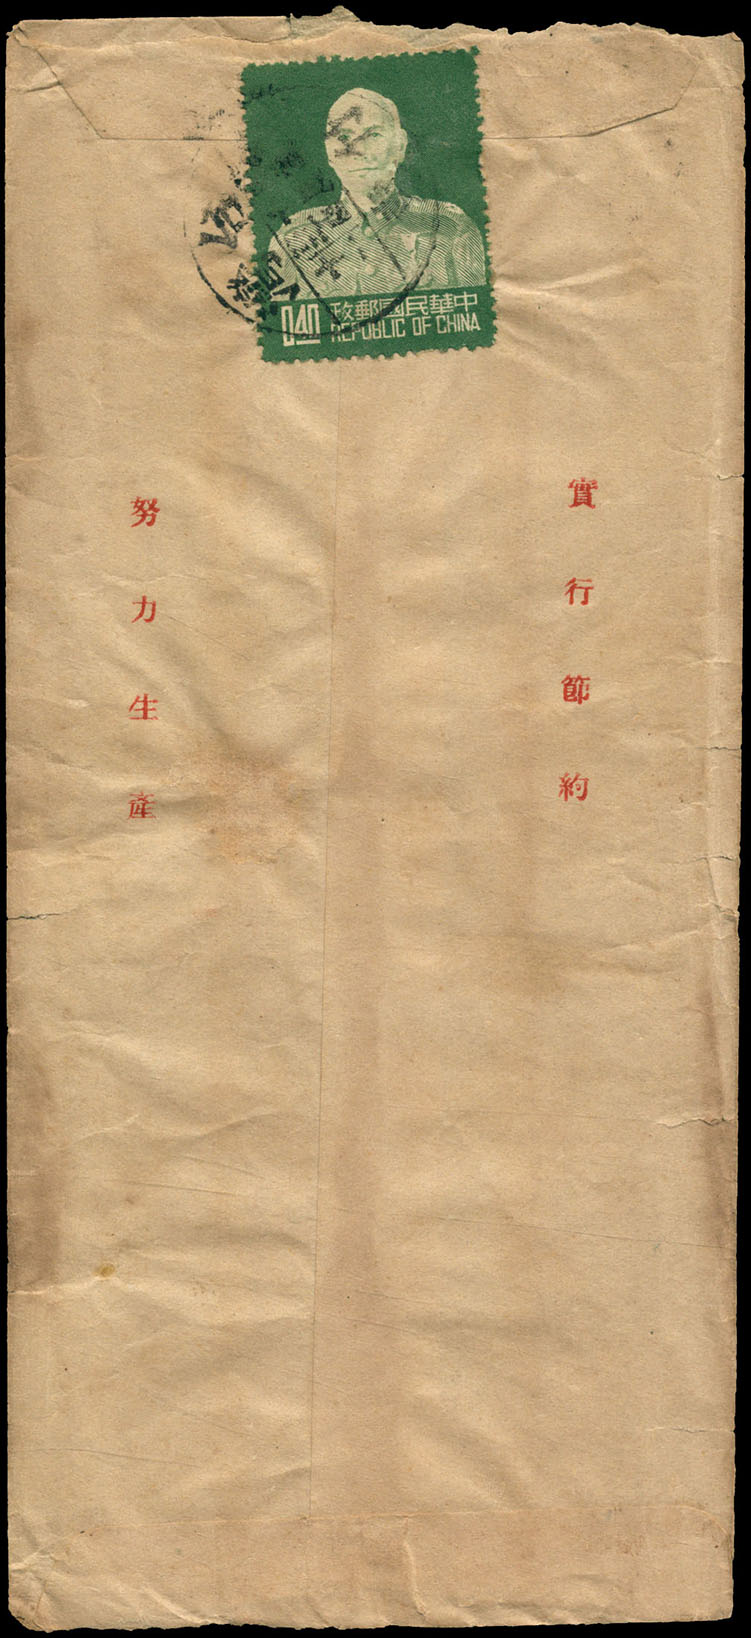 中華民國郵政
0.40 REPUBLIC OF CHINA
實行節約
努力生產